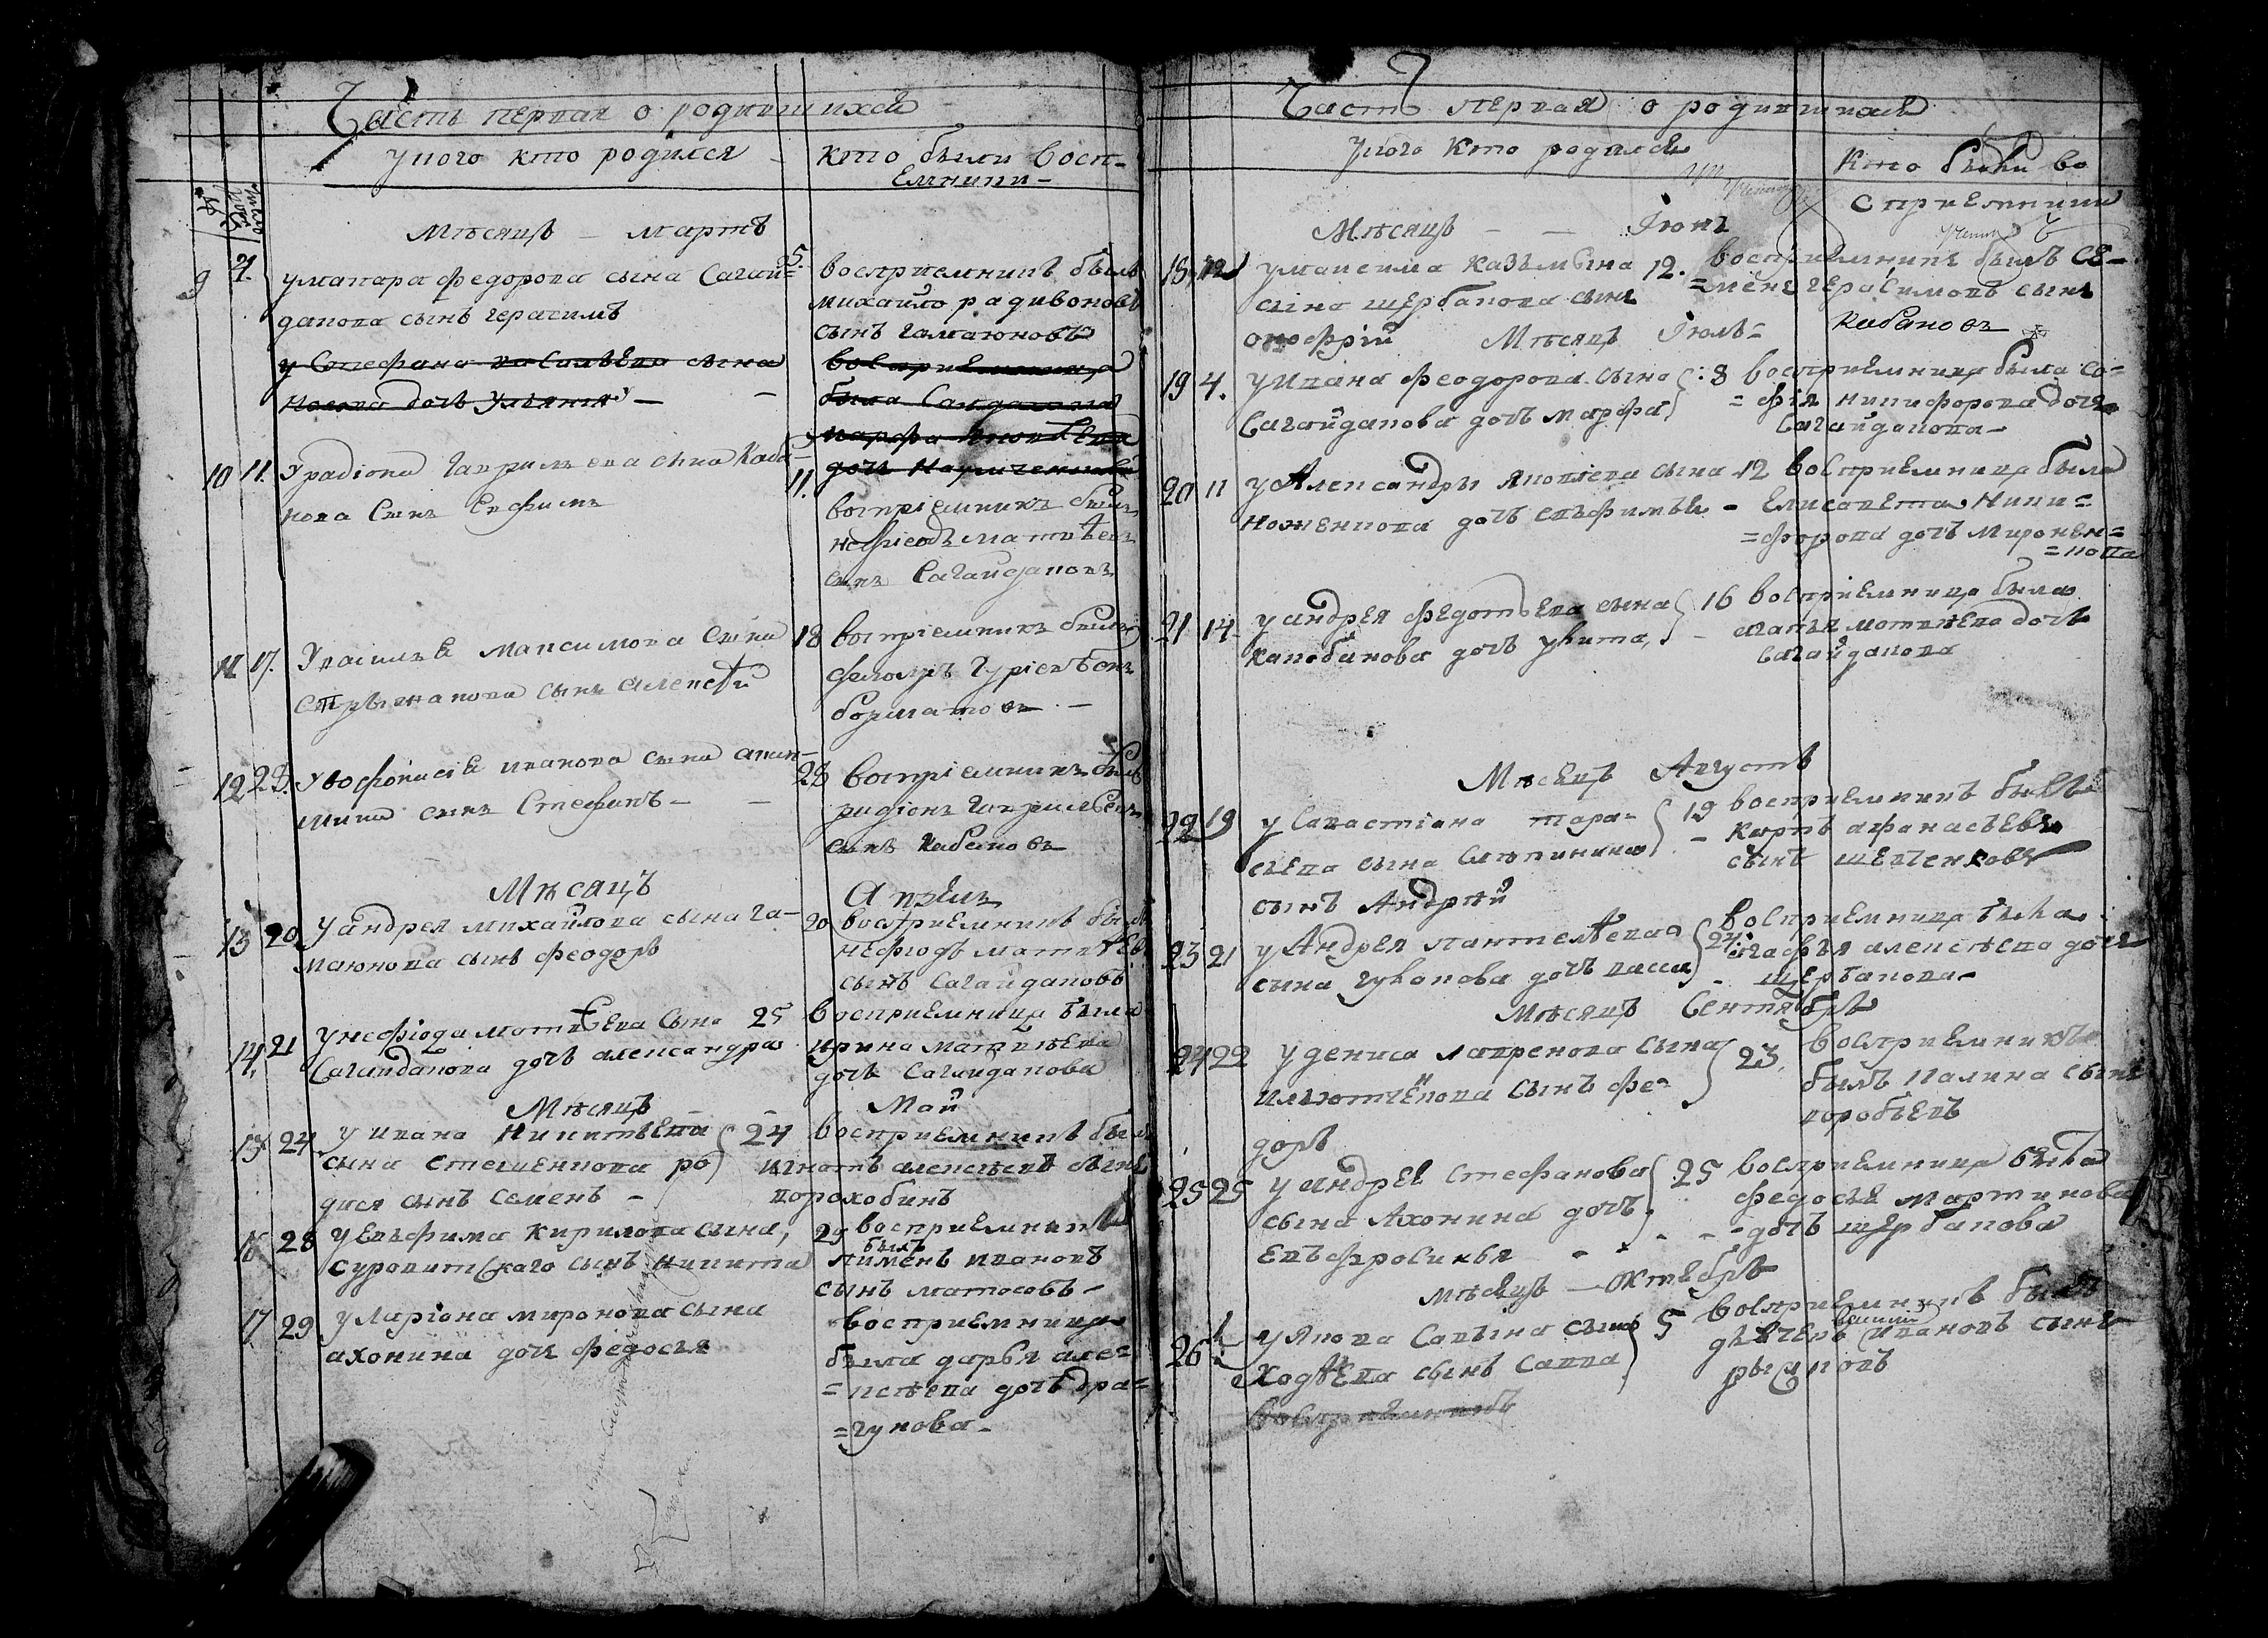 Часть первая о родившихся
у кого кто родился
кто были восп-
емники-
Мѣсяцъ - мартъ
9 4. у макара федорова сына Сагай-
дакова сынъ герасимъ
5. воспрiемникъ былъ
михайло радивоновъ
сынъ гамаюновъ
у Стефана васильева сына
носова дочь Ульяна -
воспрiемница
была Сагдакова
марфа
дочь
10 11. У радiона гаврилева сына каба-
нова сынъ Ефимъ
11. воспрiемникъ былъ
нефiодъ матвѣевъ
сынъ Сагайдаковъ
11 17. У василья максимова сына
стрѣжакова сынъ алексѣй
18 воспрiемникъ былъ
гурiевъ сынъ
борматовъ -
12 28. У вофонасiя иванова сына акин-
мина сынъ Стефанъ -
28 воспрiемникъ былъ
радiонъ гаврилевъ
сынъ кабановъ
Мѣсяцъ Апрѣль
13 20 у андрея михайлова сына га-
маюнова сынъ феодоръ
20 воспрiемникъ былъ
нефiодъ матвѣев
сынъ сагайдаковъ
14. 21 у нефiода матвѣева сына
Сагайдакова дочь александра
25 воспрiемница была
ирина матвѣева
дочь сагайдакова
Мѣсяцъ - Май
15 24 у ивана никитѣева
сына стешенкова ро
дися сынъ семенъ -
24 воспрiемникъ былъ
игнатъ алексѣевъ сынъ
порохобинъ
16 28 у евъфима кирилова сына,
суровитскаго сынъ никита
29 воспрiемникъ
былъ
пименъ ивановъ
сынъ матосовъ -
17 29 у ларiона миронова сына
ахонина дочь федосья
воспрiемница
была дарья але-
=ксѣева дочь дра=
=гунова-
Часть первая о родившихся
У кого кто родился
Кто были во
сприемники
Мѣсяцъ - - Iюнь
18 12 у максима казьмина
сына щербакова сынъ
онофрiй
12. воспрiемникъ былъ се-
=менъ герасимовъ сынъ
кабановъ
Мѣсяцъ Iюль=
19 4. у ивана феодорова сына
Сагайдакова дочь марфа
8 воспрiемница была со-
=фiя никифорова дочь
сагайдакова-
20 11 у Александры яковлева сына
ноженкова дочь евъфимья -
12 воспрiемница была
елисавета ники=
=форова дочь миронен=
=кова
21 14 у андрея федотьева сына
кабанова дочь улита,
16 воспрiемница была
агапья матвѣева дочь
сагайдакова
Мѣсецъ Августъ
22 19 у Савастiана тара-
сьева сына слѣпинина
сынъ Андрѣй
19 воспрiемникъ былъ
- карпъ афанасьевъ
сынъ шевченковъ
23 21 у Андрея пантелѣева
сына гукова дочь васса
24. воспрiемница была
агафья алексѣева дочь
щербакова-
Мѣсяцъ Сентябрь
24 22 у дениса лавренова сына
сынъ фе-
доръ
23. воспрiемникъ
былъ калина сынъ
воробьевъ
25 25 у андрея стефанова
сына ахонина дочь
евъфросинья - - - -
25 воспрiемница была
федосья мартинова
- дочь щербакова
мѣсецъ - октябрь
26 у якова савѣина сына
ходѣева сынъ савва
5 воспрiемникъ былъ
ивановъ сынъ
рысиковъ
воспрiемникъ